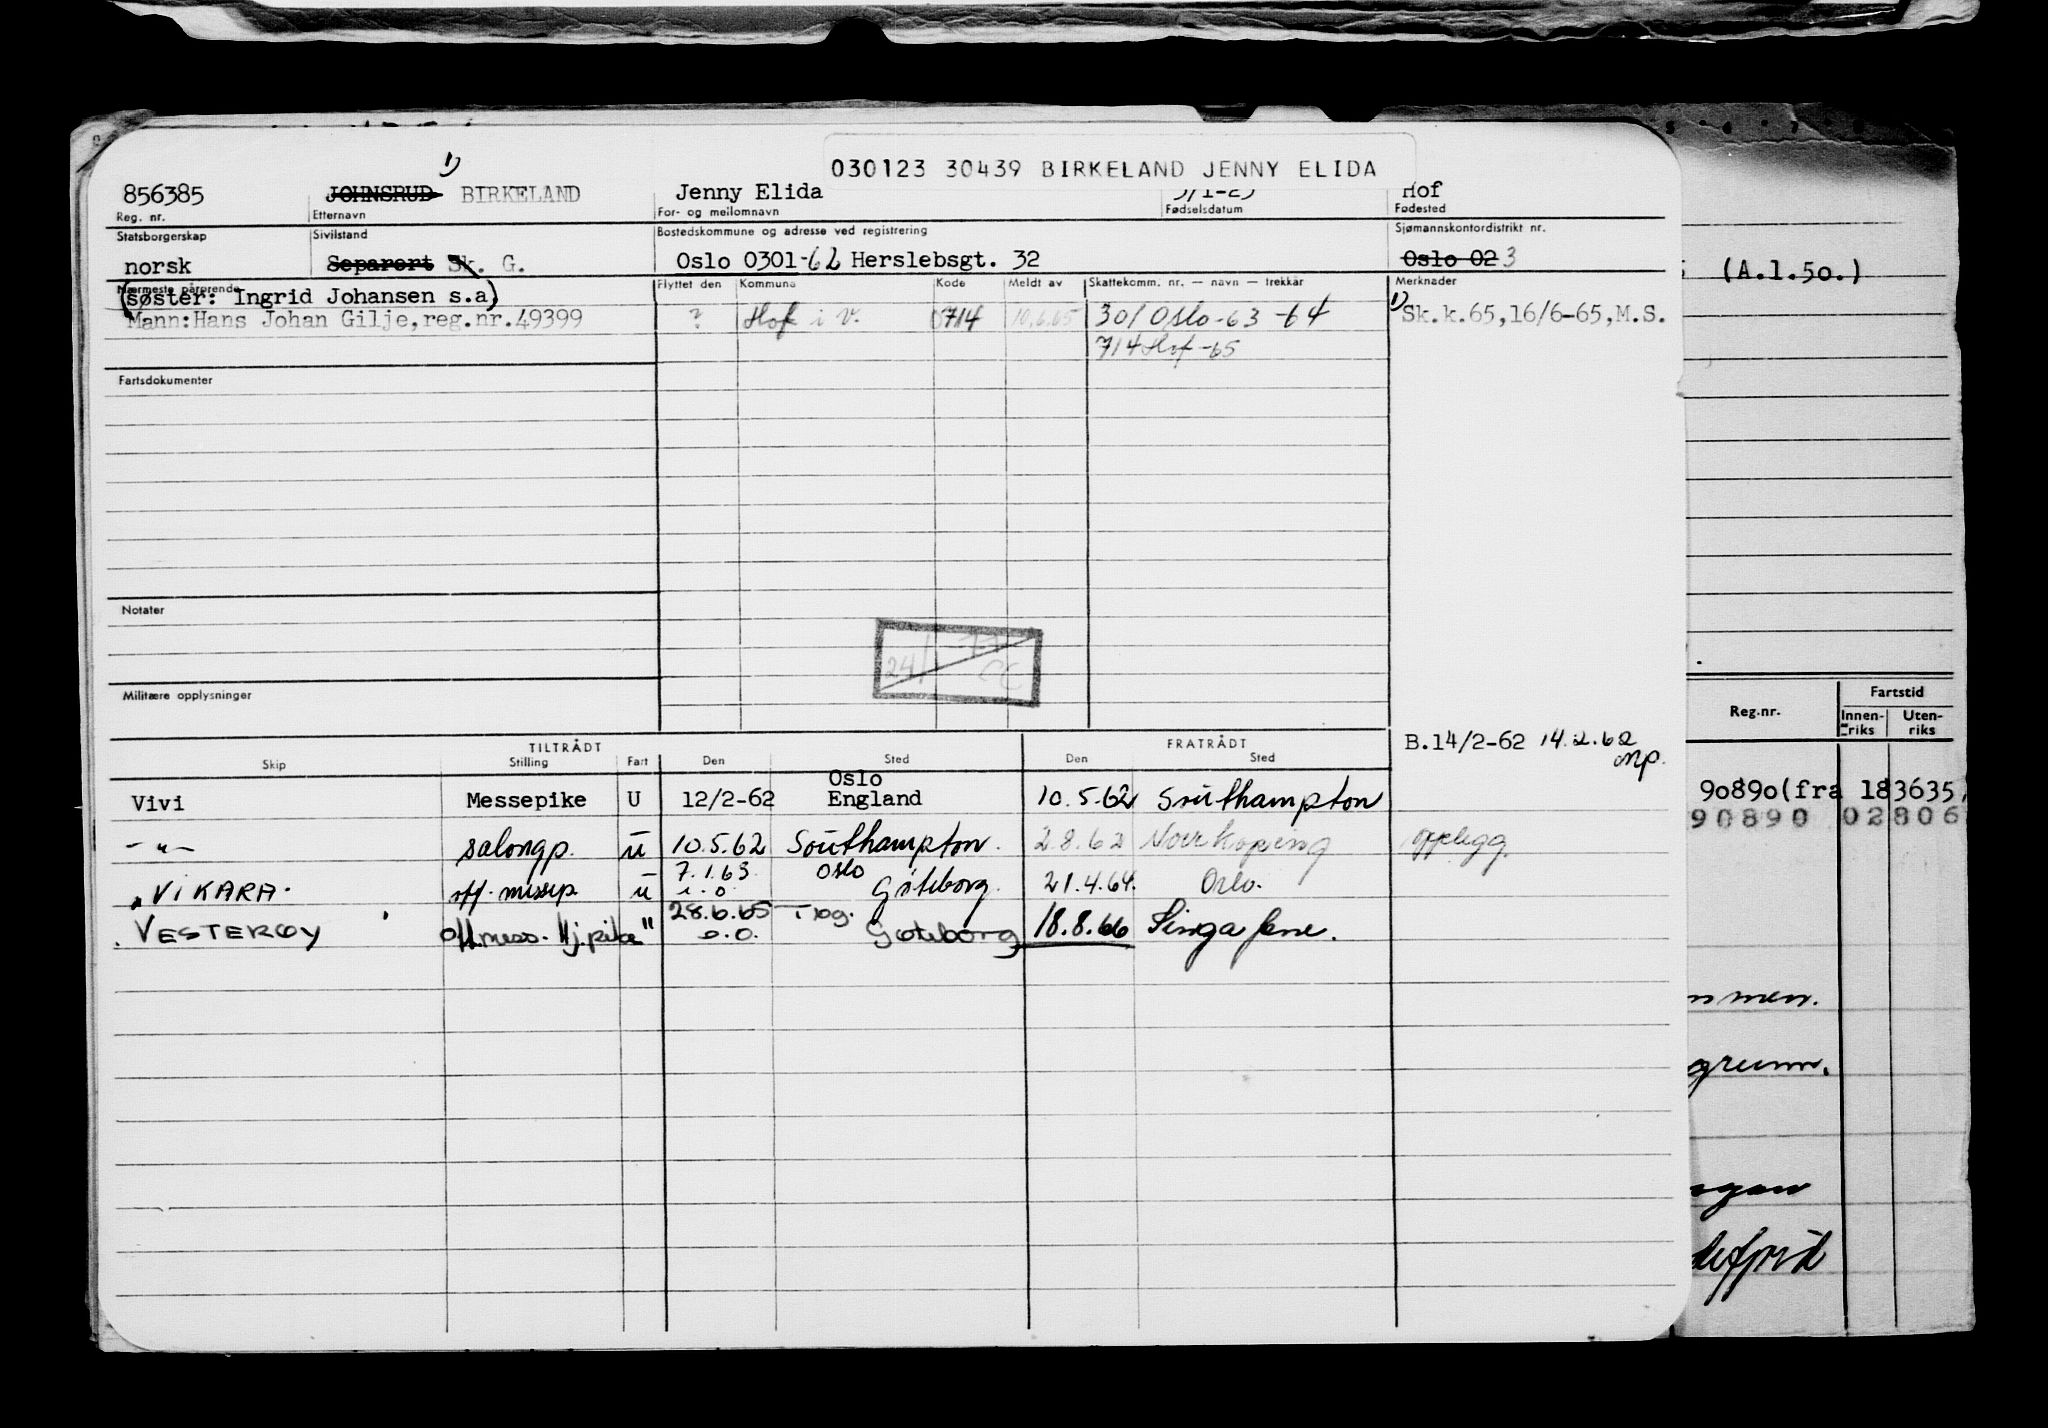 030123 30439 BIRKELAND JENNY ELIDA
1)
856385 JOHNSRUD BIRKELAND Jenny Elida 3/1-23 Hof
Reg. nr. Etternavn For- og mellomnavn Fødselsdatum Fødested
Statsborgerskap Sivilstand Bostedskommune og adresse ved registrering Sjømannskontordistrikt nr.
norsk Separert Sk. G. Oslo 0301-62 Herslebsgt. 32 Oslo 02 3
Nærmeste pårørende Flyttet den Kommune Kode Meldt av Skattekomm. nr. — navn — trekkår Merknader
(søster: Ingrid Johansen s.a)
Mann:Hans Johan Gilje,reg.nr.49399 ? Hof i V. 0714 10.6.65 301 Oslo-63 -64 1) Sk.k.65,16/6-65,M.S.
714 Hof -65
Fartsdokumenter
Notater
24/ CC
Militære opplysninger
TILTRÅDT FRATRÅDT B.14/2-62 14.2.62
Skip Stilling Fart Den Sted Den Sted Mp.
Oslo
Vivi Messepike U 12/2-62 England 10.5.62 Southampton
-"- salongp. u 10.5.62 Southampton. 2.8.62 Norrkoping opplegg.
7.1.63 Oslo
VIKARA. off. messep u i.o. Göteborg. 21.4.64. Oslo.
28.6.65 Tbg.
VESTERØY off.mess. hj.pike " o.o. Gøteborg 18.8.66 Singapore.
(A.l.50.)
Reg.nr. Fartstid
Innenriks Utenriks
90890(fra 183635,
90890 02806
mmen.
grunn.
ngan
defjord